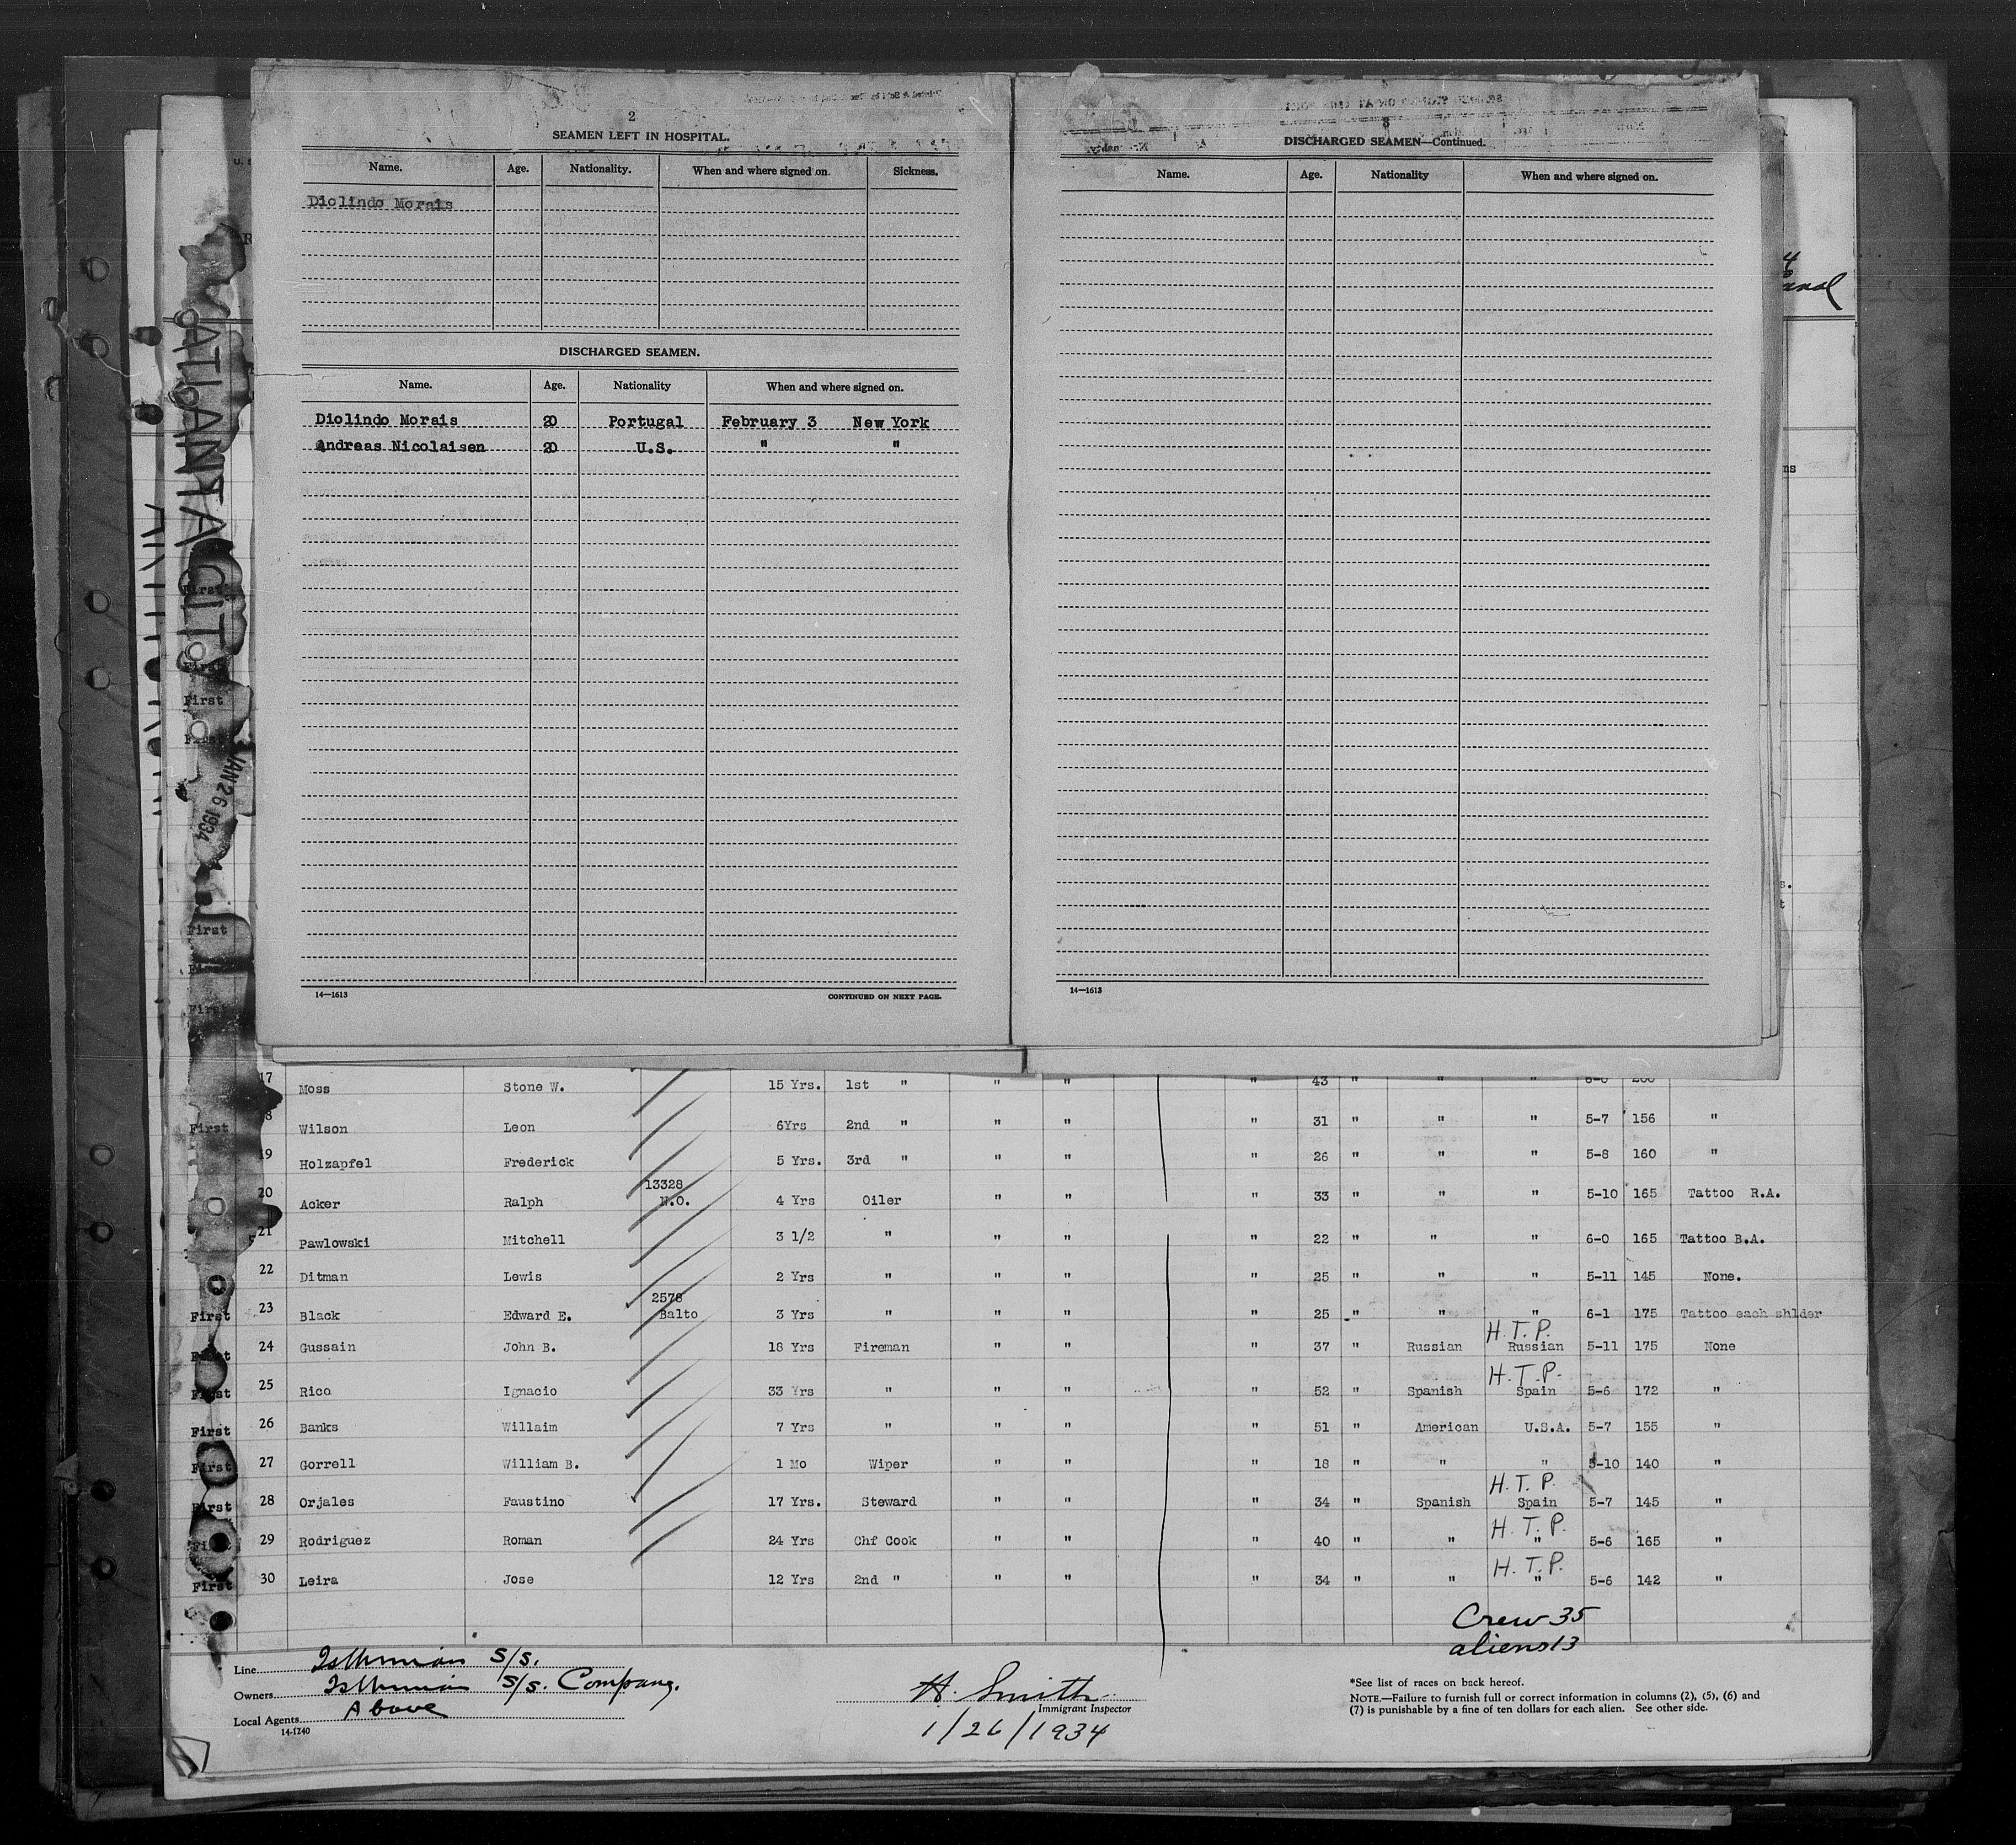 2
SEAMEN LEFT IN HOSPITAL.
Name. Age. Nationality. When and where signed on. Sickness.
Diolindo Morais
DISCHARGED SEAMEN.
Name. Age. Nationality When and where signed on.
Diolindo Morais 20 Portugal February 3 New York
Andreas Nicolaisen 20 U.S. " "
14—1613 CONTINUED ON NEXT PAGE.
3
DISCHARGED SEAMEN—Continued.
Name. Age. Nationality When and where signed on.
14—1613
ATLANTA CITY
JAN 26 1934
First
First
First
First
First
First
17 Moss Stone W. 15 Yrs. 1st " " " " 43 " " " 6-0 200
First 18 Wilson Leon 6Yrs 2nd " " " " 31 " " " 5-7 156 "
19 Holzapfel Frederick 5 Yrs. 3rd " " " " 26 " " " 5-8 160 "
20 Acker Ralph 13328 N.O. 4 Yrs Oiler " " " 33 " " " 5-10 165 Tattoo R.A.
21 Pawlowski Mitchell 3 1/2 " " " " 22 " " " 6-0 165 Tattoo B.A.
22 Ditman Lewis 2 Yrs " " " " 25 " " " 5-11 145 None.
First 23 Black Edward E. 2578 Balto 3 Yrs " " " " 25 " " " 6-1 175 Tattoo each shlder
First 24 Gussain John B. 18 Yrs Fireman " " " 37 " Russian H.T.P. Russian 5-11 175 None
First 25 Rico Ignacio 33 Yrs " " " " 52 " Spanish H.T.P. Spain 5-6 172 "
First 26 Banks Willaim 7 Yrs " " " " 51 " American U.S.A. 5-7 155 "
First 27 Gorrell William B. 1 Mo Wiper " " " 18 " " " 5-10 140 "
First 28 Orjales Faustino 17 Yrs. Steward " " " 34 " Spanish H.T.P. Spain 5-7 145 "
First 29 Rodriguez Roman 24 Yrs Chf Cook " " " 40 " " H.T.P. " 5-6 165 "
First 30 Leira Jose 12 Yrs 2nd " " " " 34 " " H.T.P. " 5-6 142 "
Crew 35
aliens 13
Line Isthmian S/S.
Owners Isthmian S/S. Company.
Local Agents Above
14-1240
H. Smith
Immigrant Inspector
1/26/1934
*See list of races on back hereof.
NOTE.—Failure to furnish full or correct information in columns (2), (5), (6) and
(7) is punishable by a fine of ten dollars for each alien. See other side.